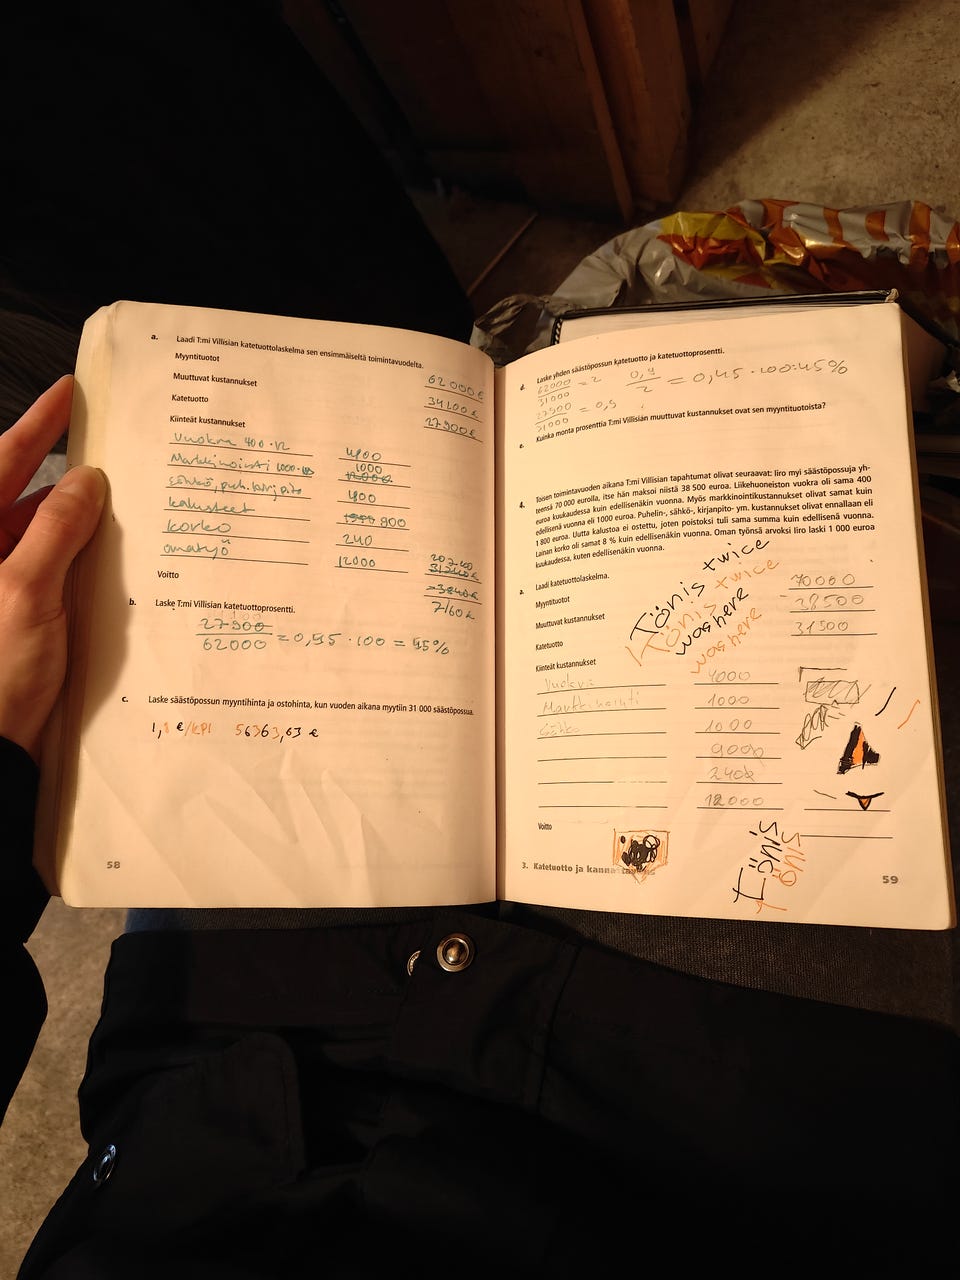 a. Laadi T:mi Villisian katetuottolaskelma sen ensimmäiseltä toimintavuodelta.
Myyntituotot 62000€
Muuttuvat kustannukset 34100€
Katetuotto 27900€
Kiinteät kustannukset
Vuokra 400·12 4800
Markkinointi 1000
sähkö, puh. kirjpito 1800
kalusteet 900
korko 240
omatyö 12000
Voitto 7160€
b. Laske T:mi Villisian katetuottoprosentti.
27900
62000 = 0,45 · 100 = 45%
c. Laske säästöpossun myyntihinta ja ostohinta, kun vuoden aikana myytiin 31 000 säästöpossua.
1,1 €/kpl 56363,63 €
58
d. Laske yhden säästöpossun katetuotto ja katetuottoprosentti.
62000
31000 = 2 0,9
2 = 0,45 · 100 = 45%
27900
31000 = 0,9
e. Kuinka monta prosenttia T:mi Villisian muuttuvat kustannukset ovat sen myyntituotoista?
4. Toisen toimintavuoden aikana T:mi Villisian tapahtumat olivat seuraavat: Iiro myi säästöpossuja yh-
teensä 70 000 eurolla, itse hän maksoi niistä 38 500 euroa. Liikehuoneiston vuokra oli sama 400
euroa kuukaudessa kuin edellisenäkin vuonna. Myös markkinointikustannukset olivat samat kuin
edellisenä vuonna eli 1000 euroa. Puhelin-, sähkö-, kirjanpito- ym. kustannukset olivat ennallaan eli
1 800 euroa. Uutta kalustoa ei ostettu, joten poistoksi tuli sama summa kuin edellisenä vuonna.
Lainan korko oli samat 8 % kuin edellisenäkin vuonna. Oman työnsä arvoksi Iiro laski 1 000 euroa
kuukaudessa, kuten edellisenäkin vuonna.
a. Laadi katetuottolaskelma.
Myyntituotot 70000
Muuttuvat kustannukset 38500
Katetuotto 31500
Kiinteät kustannukset
Vuokra 4000
Markkinointi 1000
Sähkö 1000
900
240
12000
Voitto
Tõnis twice
was here
Tõnis twice
was here
Tõnis
Tõnis
3. Katetuotto ja kanna
59